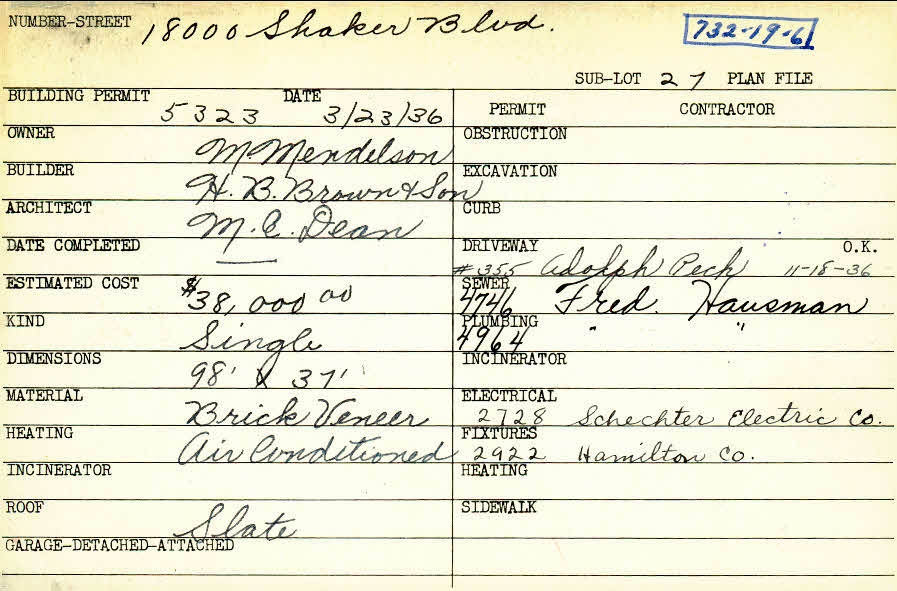 NUMBER-STREET 18000 Shaker Blvd. 732-19-6
SUB-LOT 27 PLAN FILE
BUILDING PERMIT 5323 DATE 3/23/36
PERMIT CONTRACTOR
OWNER M Mendelson
OBSTRUCTION
BUILDER H. B. Brown & Son
EXCAVATION
ARCHITECT M. E. Dean
CURB
DATE COMPLETED ——
DRIVEWAY O.K.
#355 Adolph Peck 11-18-36
ESTIMATED COST $38,000 00
SEWER 4746 Fred. Hausman
KIND Single
PLUMBING 4964 " "
DIMENSIONS 98' x 37'
INCINERATOR
MATERIAL Brick Veneer
ELECTRICAL 2728 Schechter Electric Co.
HEATING Air Conditioned
FIXTURES 2922 Hamilton Co.
INCINERATOR
HEATING
ROOF Slate
SIDEWALK
GARAGE-DETACHED-ATTACHED